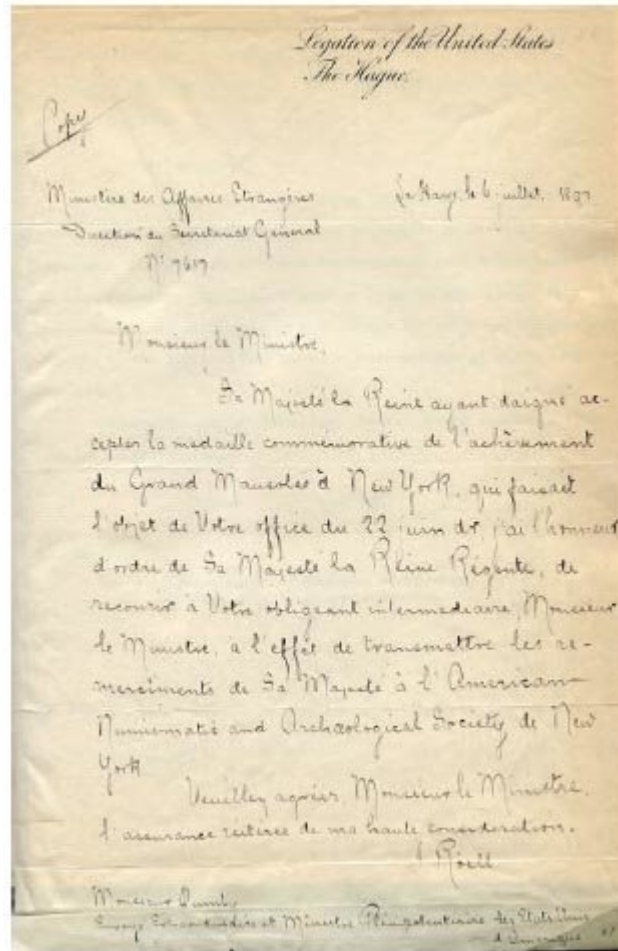 Legation of the United States
The Hague.
Copy
Ministère des Affaires Etrangères
La Haye, le 6 juillet. 1897
Direction du Secretariat General
No 7617.
Monsieur le Ministre,
Sa Majesté la Reine ayant daigné ac-
cepter la medaille commémorative de l'achèvement
du Grand Mausolée à New York, qui faisait
l'objet de Votre office du 22 juin dr, j'ai l'honneur
d'ordre de Sa Majesté la Reine Régente, de
recourir à Votre obligeant intermediaire, Monsieur
le Ministre, a l'effet de transmettre les re-
merciments de Sa Majesté à l'American
Numismatic and Archæological Society de New
York
Veuillez agréer, Monsieur le Ministre,
l'assurance réiterée de ma haute consideration.
Röell
Monsieur
Envoyé Extraordinaire et Ministre Plénipotentiaire des Etats Unis
d'Amerique